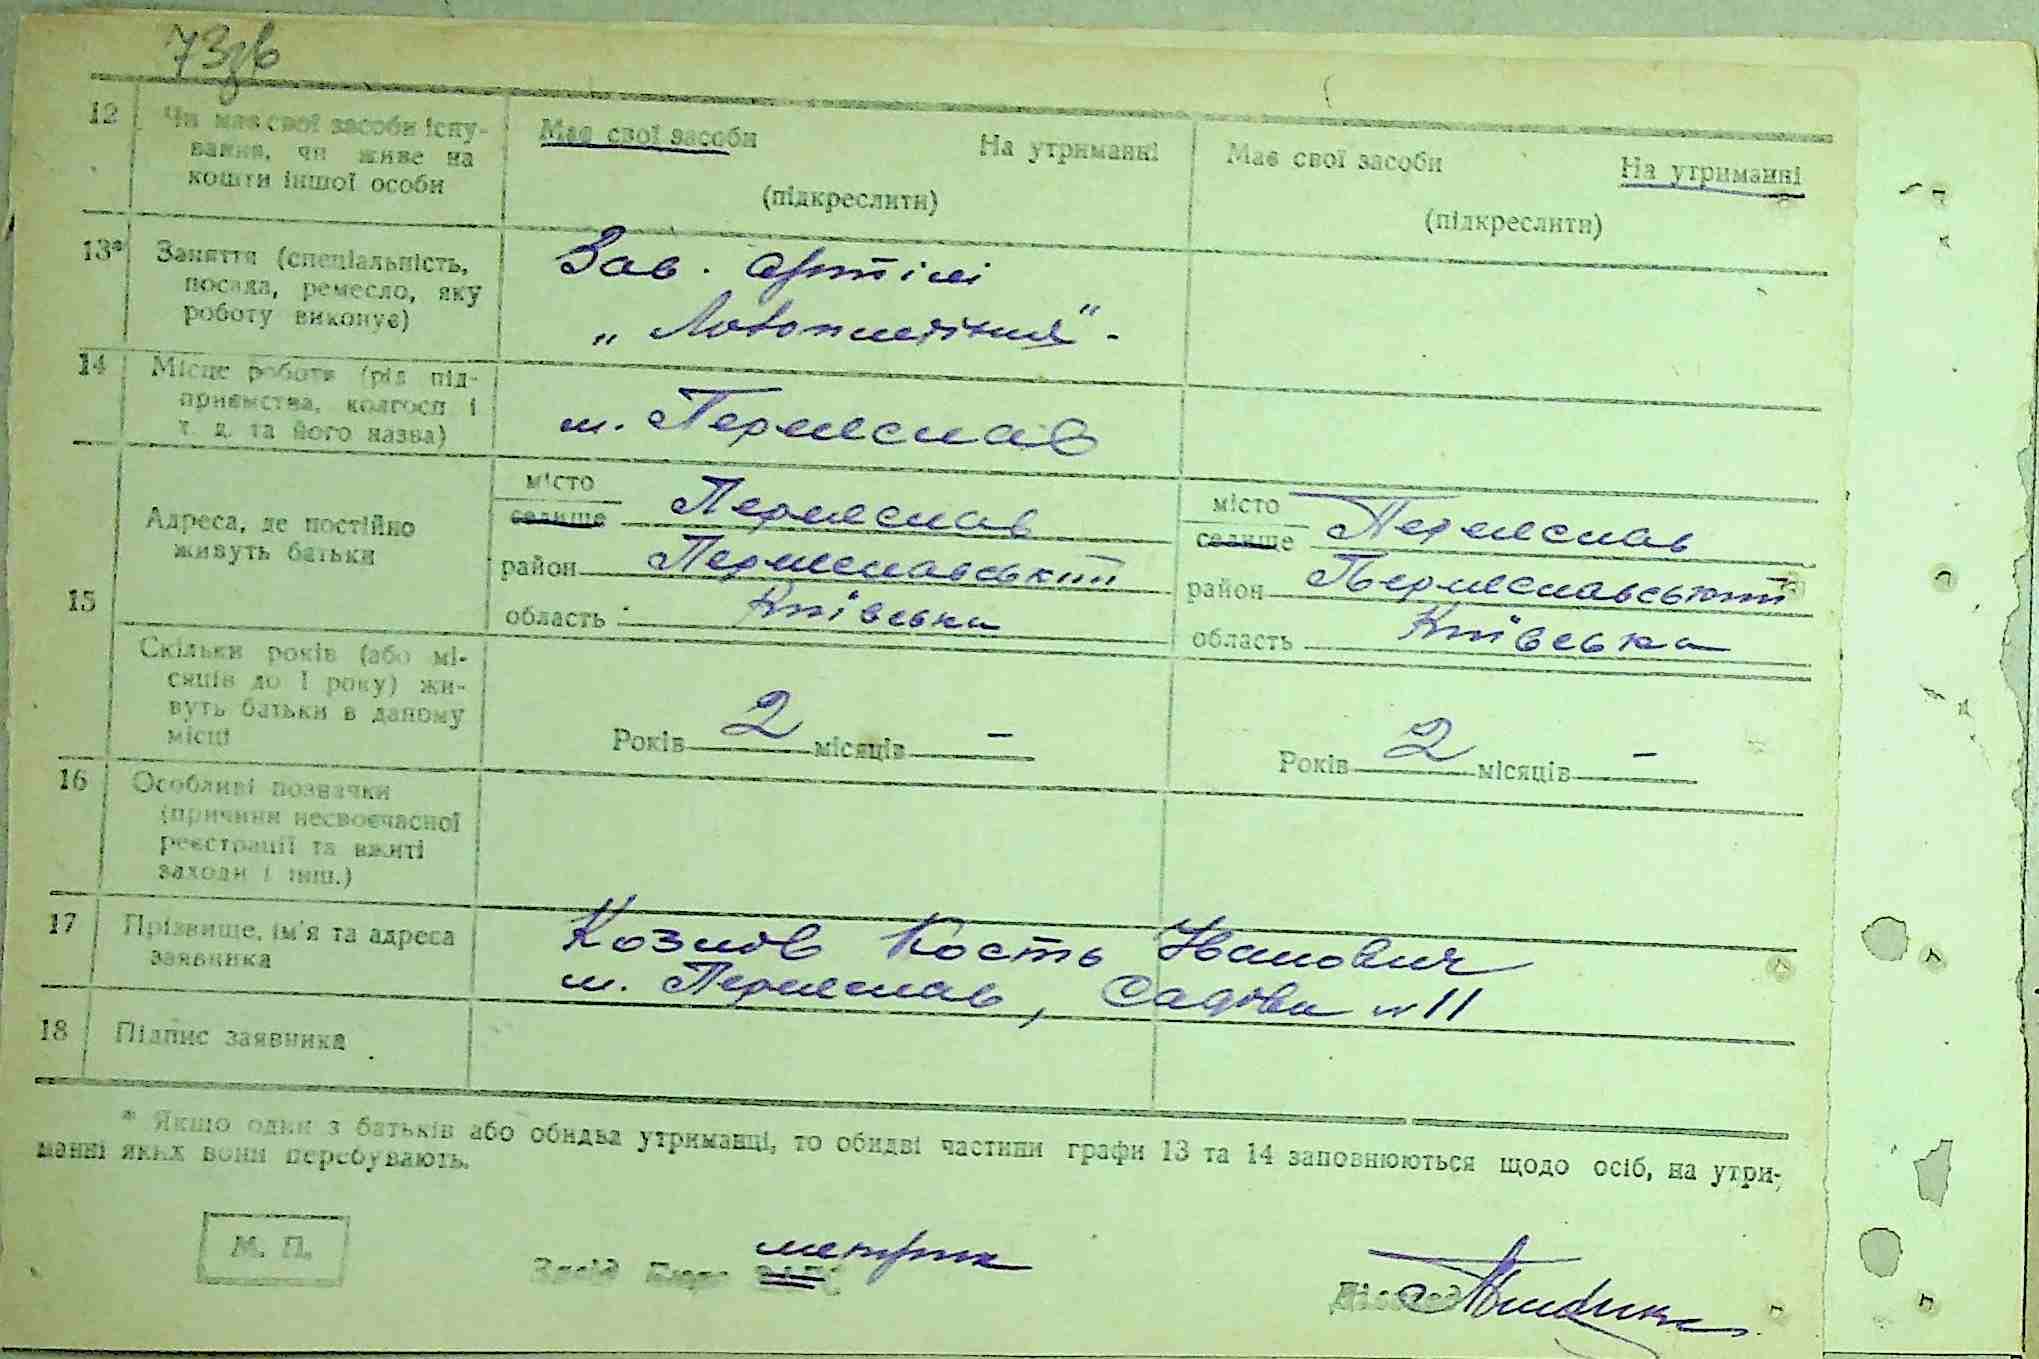 73зв
12 Чи має свої засоби існу-
вання, чи живе на
кошти іншої особи
Має свої засоби На утриманні
(підкреслити)
Має свої засоби На утриманні
(підкреслити)
13* Заняття (спеціальність,
посада, ремесло, яку
роботу виконує)
Зав. артілі
14 Місце роботи (рід під-
приємства, колгосп і
т. д. та його назва)
м. Переяслав
15 Адреса, де постійно
живуть батьки
місто
селище Переяслав
район Переяславський
область Київська
місто
селище Переяслав
район Переяславський
область Київська
Скільки років (або мі-
сяців до 1 року) жи-
вуть батьки в даному
місці
Років 2 місяців –
Років 2 місяців –
16 Особливі позначки
(причини несвоєчасної
реєстрації та вжиті
заходи і інш.)
17 Прізвище, ім'я та адреса
заявника
Козлов Кость Іванович
м. Переяслав, Садова № 11
18 Підпис заявника
* Якщо один з батьків або обидва утриманці, то обидві частини графи 13 та 14 заповнюються щодо осіб, на утри-
манні яких вони перебувають.
М. П.
Завід Бюро ЗАГС метрик
Діловод